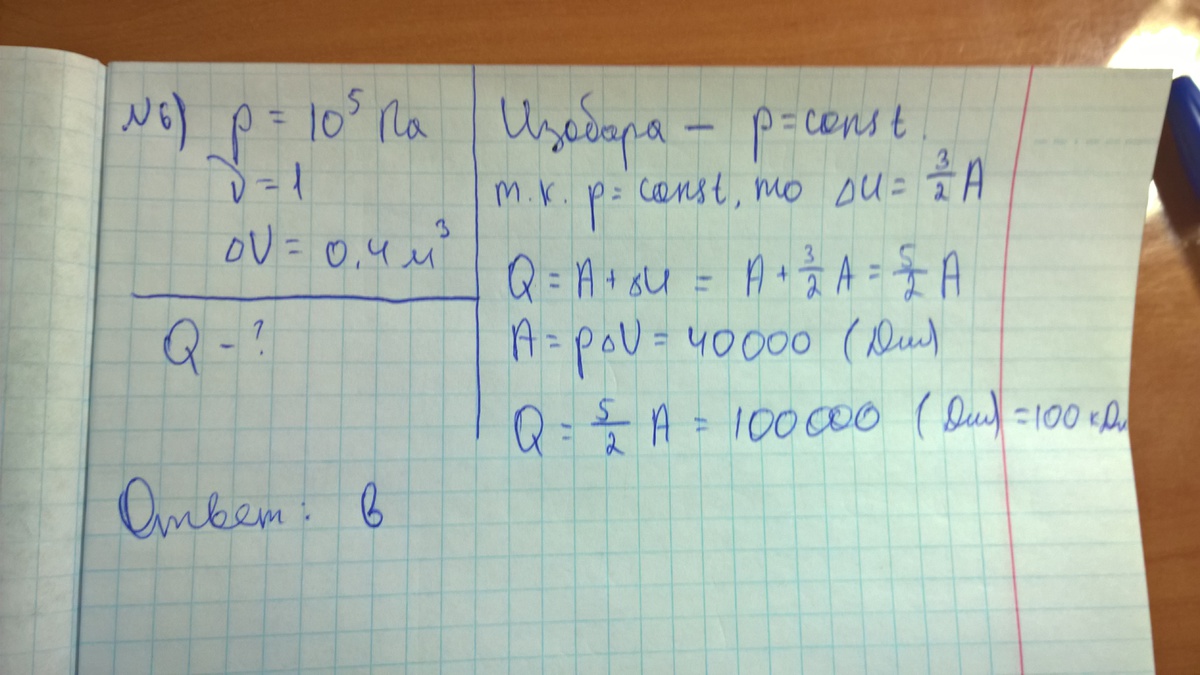 №6) p = 10⁵ Па
ν = 1
ΔV = 0,4 м³
Q - ?
Изобара — p = const.
т.к. p = const, то ΔU = 3/2 A
Q = A + ΔU = A + 3/2 A = 5/2 A
A = pΔV = 40000 (Дж)
Q = 5/2 A = 100000 (Дж) = 100 кДж
Ответ: в